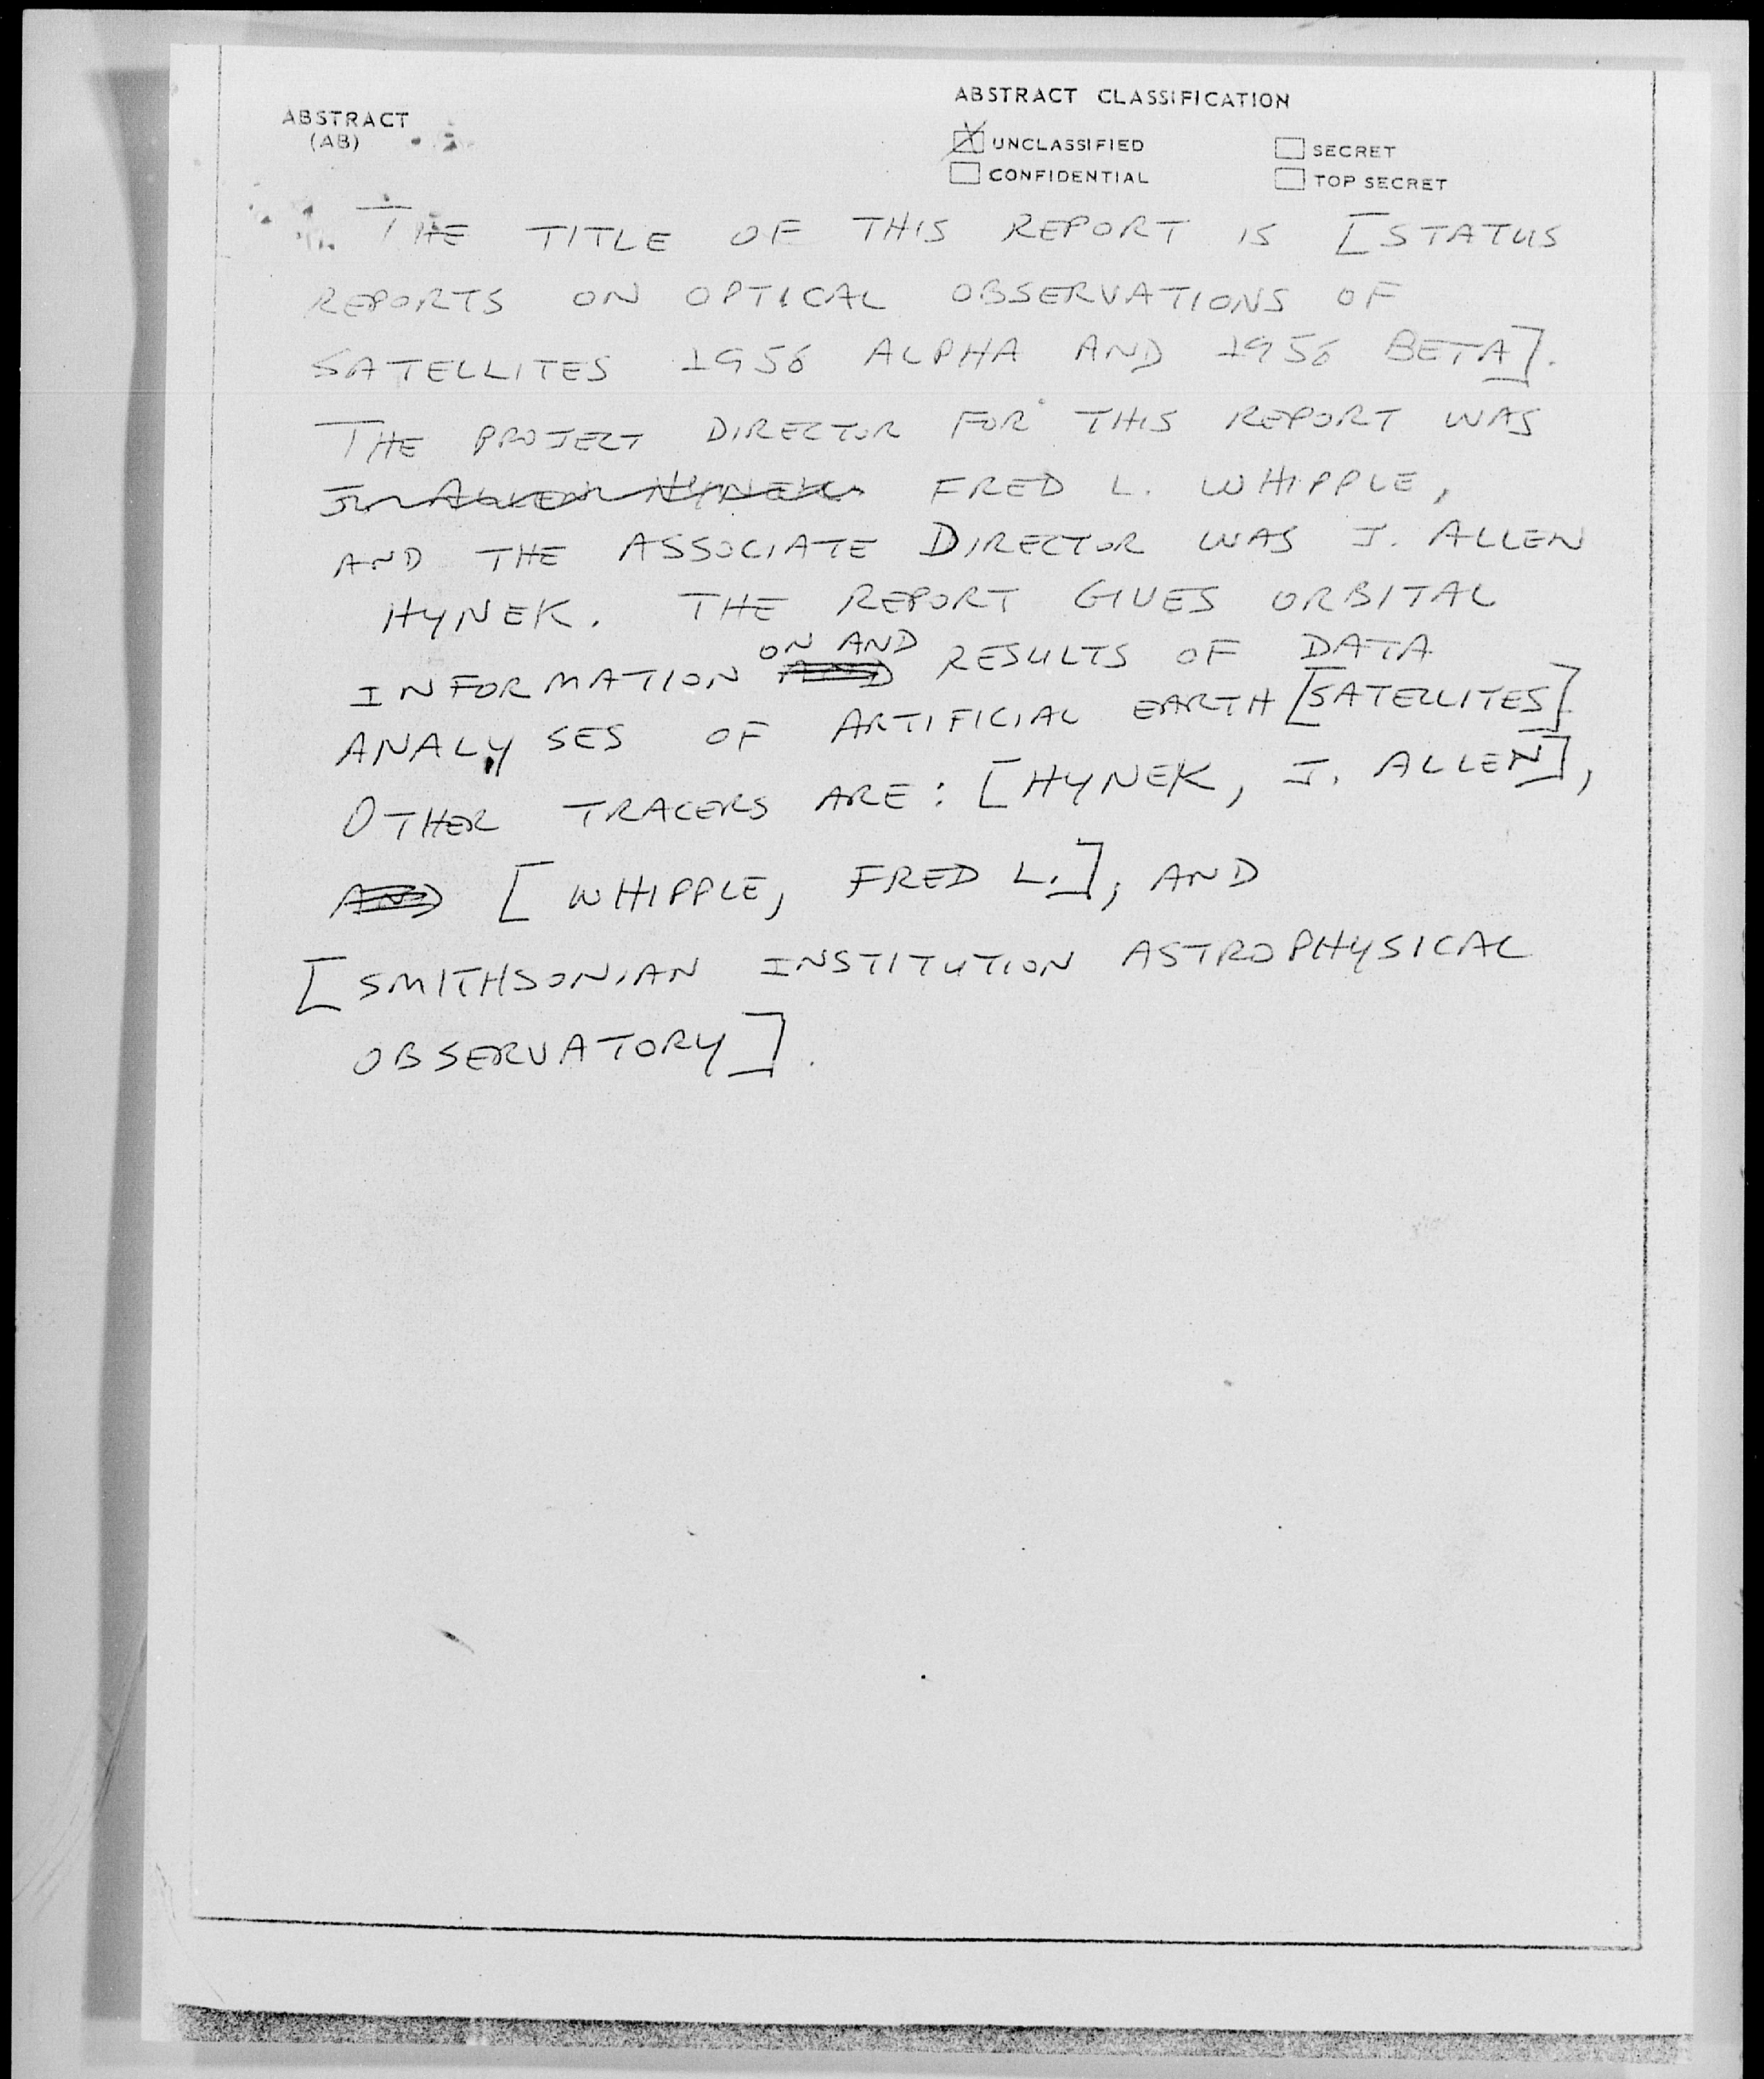 ABSTRACT CLASSIFICATION
ABSTRACT
(AB)
UNCLASSIFIED
SECRET
CONFIDENTIAL
TOP SECRET
THE TITLE OF THIS REPORT IS [STATUS
REPORTS ON OPTICAL OBSERVATIONS OF
SATELLITES 1956 ALPHA AND 1956 BETA].
THE PROJECT DIRECTOR FOR THIS REPORT WAS
J. ALLEN HYNEK FRED L. WHIPPLE,
AND THE ASSOCIATE DIRECTOR WAS J. ALLEN
HYNEK. THE REPORT GIVES ORBITAL
ON AND
INFORMATION AND RESULTS OF DATA
ANALYSES OF ARTIFICIAL EARTH [SATELLITES]
OTHER TRACERS ARE: [HYNEK, J. ALLEN],
AND [WHIPPLE, FRED L.], AND
[SMITHSONIAN INSTITUTION ASTROPHYSICAL
OBSERVATORY].